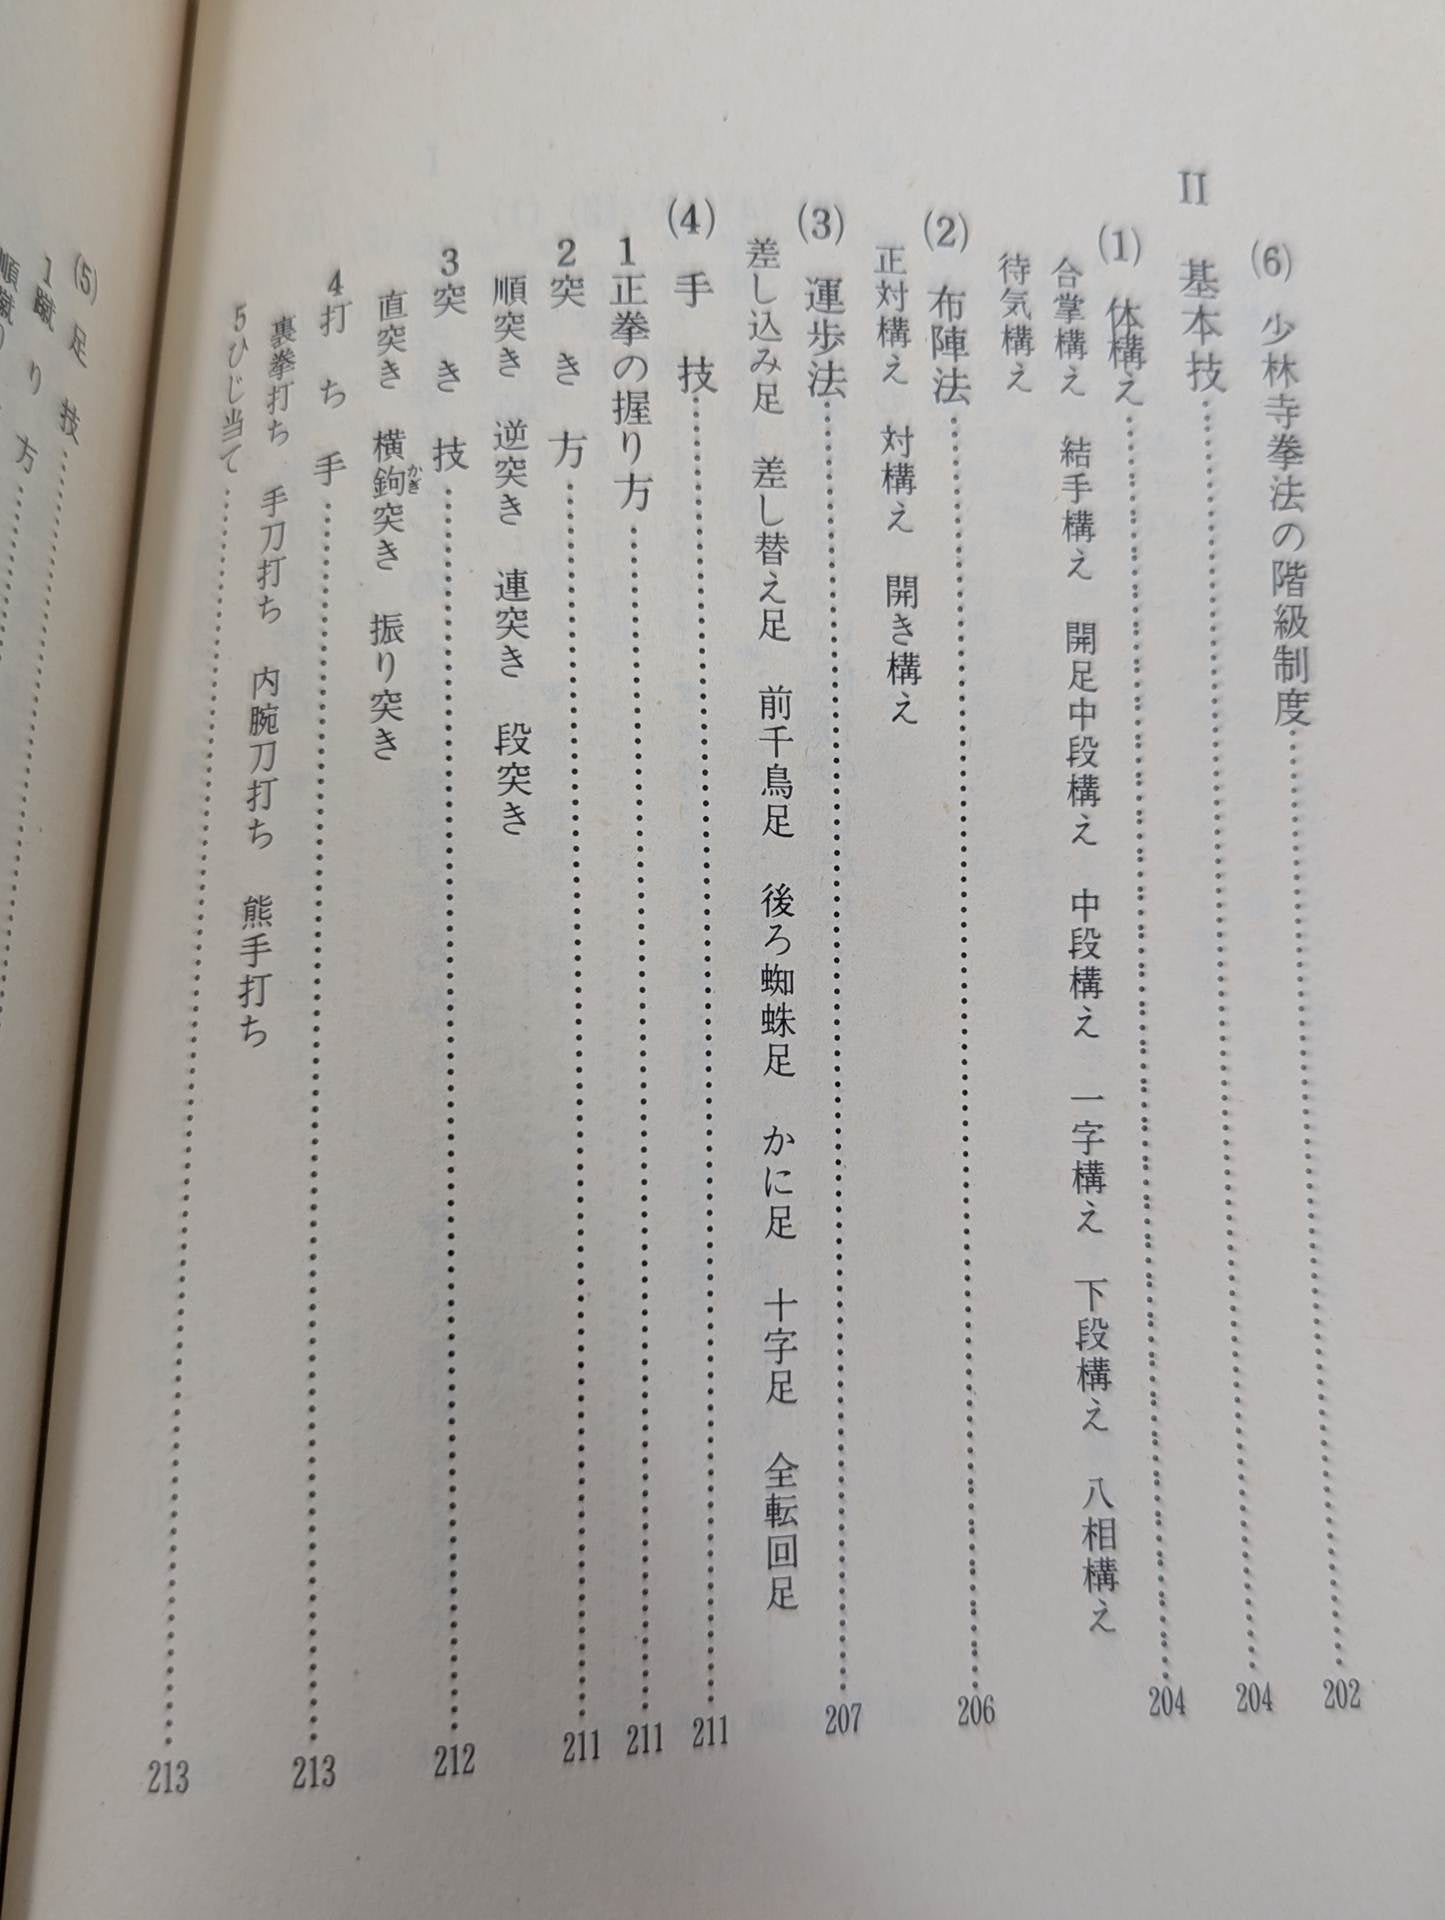 (6) 少林寺拳法の階級制度……202
II 基本技……204
(1) 体構え……204
合掌構え 結手構え 開足中段構え 中段構え 一字構え 下段構え 八相構え
待気構え
(2) 布陣法……206
正対構え 対構え 開き構え
(3) 運歩法……207
差し込み足 差し替え足 前千鳥足 後ろ蜘蛛足 かに足 十字足 全転回足
(4) 手技……211
1 正拳の握り方……211
2 突き方……211
順突き 逆突き 連突き 段突き
3 突き技……212
直突き 横鉤突き 振り突き
かぎ
4 打ち手……213
裏拳打ち 手刀打ち 内腕刀打ち 熊手打ち
5 ひじ当て……213
(5) 足技……
1 蹴り方……
順蹴り